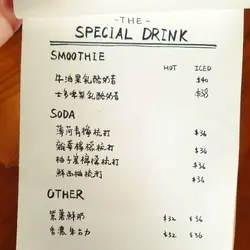 - THE -
SPECIAL DRINK
SMOOTHIE
HOT ICED
牛油果乳酪奶昔 $40
士多啤梨乳酪奶昔 $38
SODA
薄荷青檸梳打 $36
檸檬梳打 $36
柚子檸檬梳打 $36
鮮西柚梳打 $36
OTHER
紫薯鮮奶 $32 $36
香濃朱古力 $32 $36